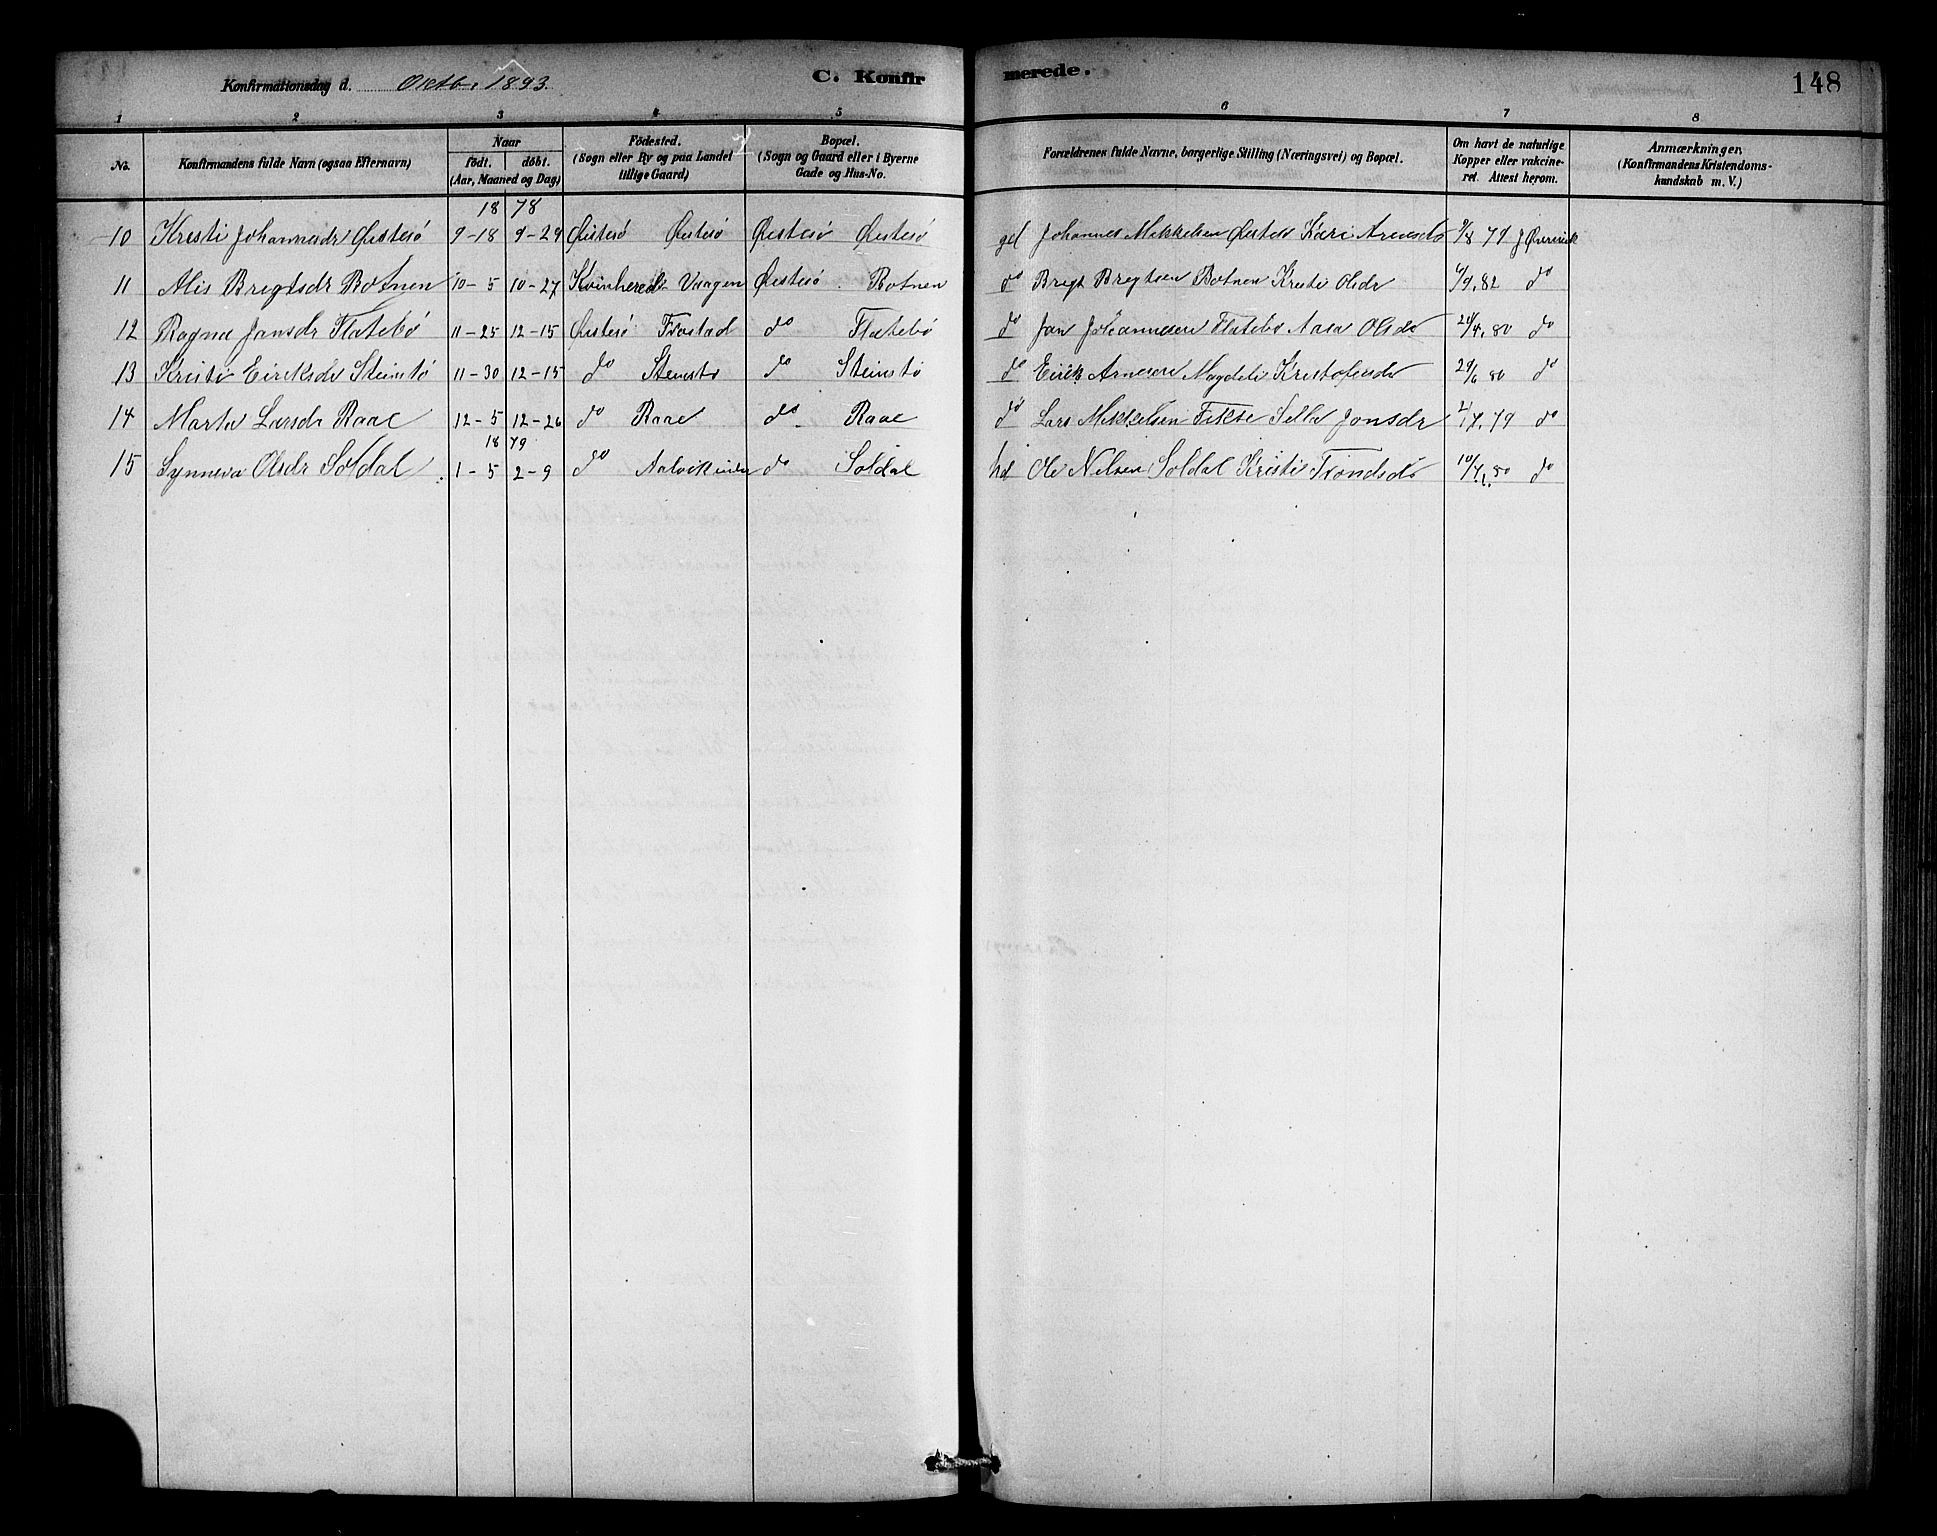 Konfirmationsdag d. Oktb. 1893. C. Konfirmerede. 148
1 2 3 4 5 6 7 8
No. Konfirmandens fulde Navn (ogsaa Efternavn) Naar födt. döbt. (Aar, Maaned og Dag) Födested. (Sogn eller By og paa Landet tillige Gaard) Bopæl. (Sogn og Gaard eller i Byerne Gade og Hus-No. Forældrenes fulde Navne, borgerlige Stilling (Næringsvei) og Bopæl. Om havt de naturlige Kopper eller vakcineret. Attest herom. Anmærkninger. (Konfirmandens Kristendomskundskab m. V.)
18 78
10 Kristi Johannesdr Øistesö 9-18 9-29 Øistesö Øistesö Øistesö Øistesö gd Johannes Mikkelsen Øistesö Kari Arnesdr 9/8 79 J Øvrevik
11 Alis Brigtsdr Botnen 10-5 10-27 Kvinhered Vaagen Øistesö Botnen do Brigt Brigtsen Botnen Kristi Olsdr 6/9.82 do
12 Ragna Jonsdr Flatebö 11-25 12-15 Øistesö Frostad do Flatebö do Jon Johannesen Flatebö Aasa Olsdr 24/4.80 do
13 Kristi Eiriksdr Steinstö 11-30 12-15 do Steinstö do Steinstö do Eirik Arnesen Magdeli Kristofersdr 29/6 80 do
14 Marta Larsdr Raae 12-5 12-26 do Raae do Raae do Lars Mikkelsen Fikse Sella Jonsdr 2/7.79 do
18 79
15 Synneva Olsdr Soldal 1-5 2-9 do Aalvik indre do Soldal hd Ole Nilsen Soldal Kristi Trondsdr 10/7.80 do